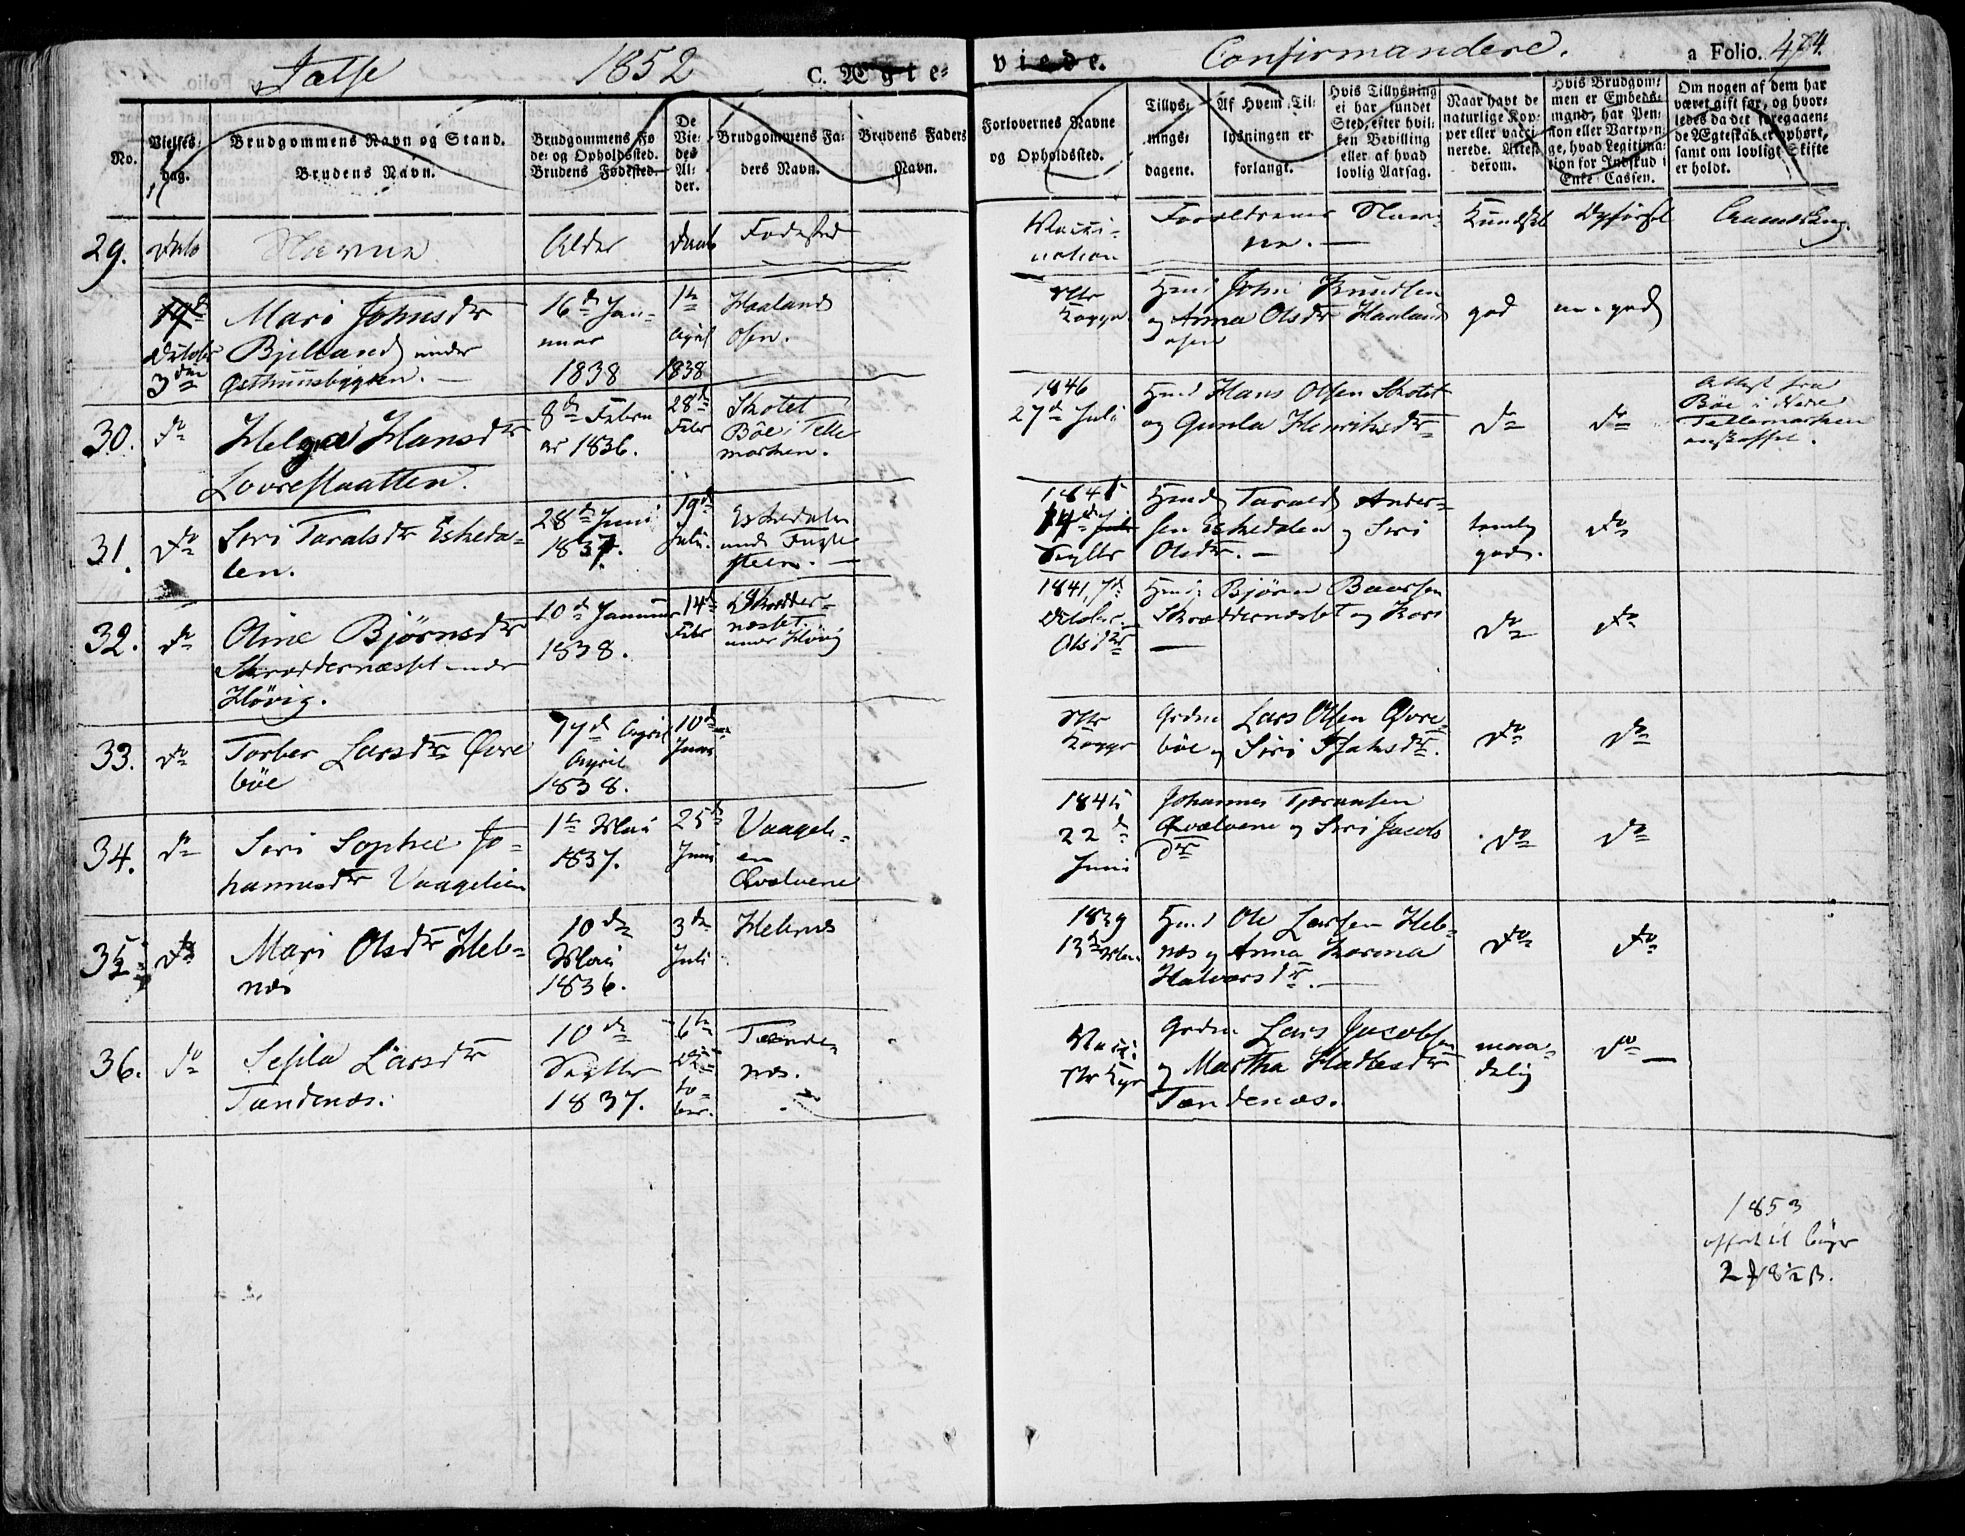 1852
C. Ægte-
viede.
Confirmandere.
a Folio. 474.
No.
Vielses-
dag.
Brudgommens Navn og Stand.
Brudens Navn.
Brudgommens Fø
de- og Opholdssted.
Brudens Fødested.
De
Vie-
des
Al-
der.
Brudgommens Fa-
ders Navn.
Brudens Faders
Navn.
Forlovernes Navne
og Opholdssted.
Tillys-
nings-
dagene.
Af Hvem Til-
lysningen er
forlangt.
Hvis Tillysning
ei har fundet
Sted, efter hvil-
ken Bevilling
eller af hvad
lovlig Aarsag.
Naar havt de
naturlige Kop-
per eller vacci
nerede. Attest
derom.
Hvis Brudgom-
men er Embeds-
mand, har Pen-
sion eller Vartpen-
ge, hvad Legitima-
tion for Indskud i
Enke-Cassen.
Om nogen af dem har
været gift før, og hvor-
ledes da det foregaaen-
de Ægteskab er ophørt,
samt om lovligt Skifte
er holdt.
29.
Dato
Navne
Alder
Daab
Fødested
Vacci-
nation
Forældrenes Nav-
ne. —
Kundskab
Opførsel
Anmerkng.
October
3die
Mari Johnsdr
Bjelland under
Østhuusbygden. —
16d Jan-
uar
1838
1te
April
1838
Haaland
Osen.
Hmd John Knudsen
og Anna Olsdr Haaland
Osen
god
meget god
30.
do
Helga Hansdr
Lovrestaatten.
8de Febru
ar 1836.
28d
Febr
Skotet
Bøe i Telle
marken.
1846
27d Juli
Hmd Hans Olsen Skotet
og Gunla Henriksdr
do
do
Attest fra
Bøe i Nedre
Tellemarken
anskaffet.
31.
do
Siri Taralsdr Eskeda-
len.
28d Juni
1837.
19d
Juli.
Eskedalen
Hmd Tarald Ander-
sen Eskedalen og Siri
Olsdr. —
temlig
god.
do
32.
do
Oline Bjørnsdr
Skræddernæsset under
Høvig.
10d Januar
1838.
14d
Febr
Skrædder-
næsset
under Høvig
1841, 7d
October
Hmd Bjørn Baarsen
Skræddernæsset og Kari
Olsdr —
do
do
33.
do
Torber Larsdr Øvre
bøe
17d April
April
1838.
10de
Juni
Grdm Lars Olsen Øvre-
bøe og Siri
do
do
34.
do
Siri Sophie Jo-
hannesdr Vaagelien
1te Mai
1837.
25d
Juni
Vaageli-
en
Qvælvene
1845
22d
Juni
Johannes Tjeransen
Qvælvene og Siri Jacobs
dr
do
do
35.
do
Mari Olsdr Heb-
næs
10de
Mai
1836.
3die
Juli
Hebnæs
1839
13d
Hmd Ole Larsen Heb-
næs og Anna Karina
Halvorsdr. —
do
do
36.
do
Sesila Larsdr
Tændenæs.
10de
Septbr
1837.
6te
Octo-
ber.
Tænde-
næs.
Grdm Lars Jacobsen
og Martha
Tændenæs.
maa-
delig
do —
1853